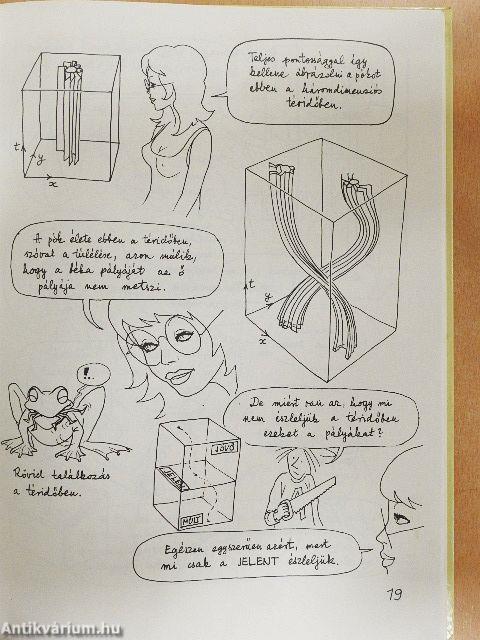 Teljes pontossággal így
kellene ábrázolni a pókot
ebben a háromdimenziós
téridőben.
t
y
x
A pók élete ebben a téridőben,
szóval a túlélése, azon múlik,
hogy a béka pályáját az ő
pályája nem metszi.
t
y
x
!
Rövid találkozás
a téridőben.
De miért van az, hogy mi
nem észleljük a téridőben
ezeket a pályákat?
JÖVŐ
JELEN
MÚLT
Egészen egyszerűen azért, mert
mi csak a JELENT észleljük.
19
Antikvárium.hu